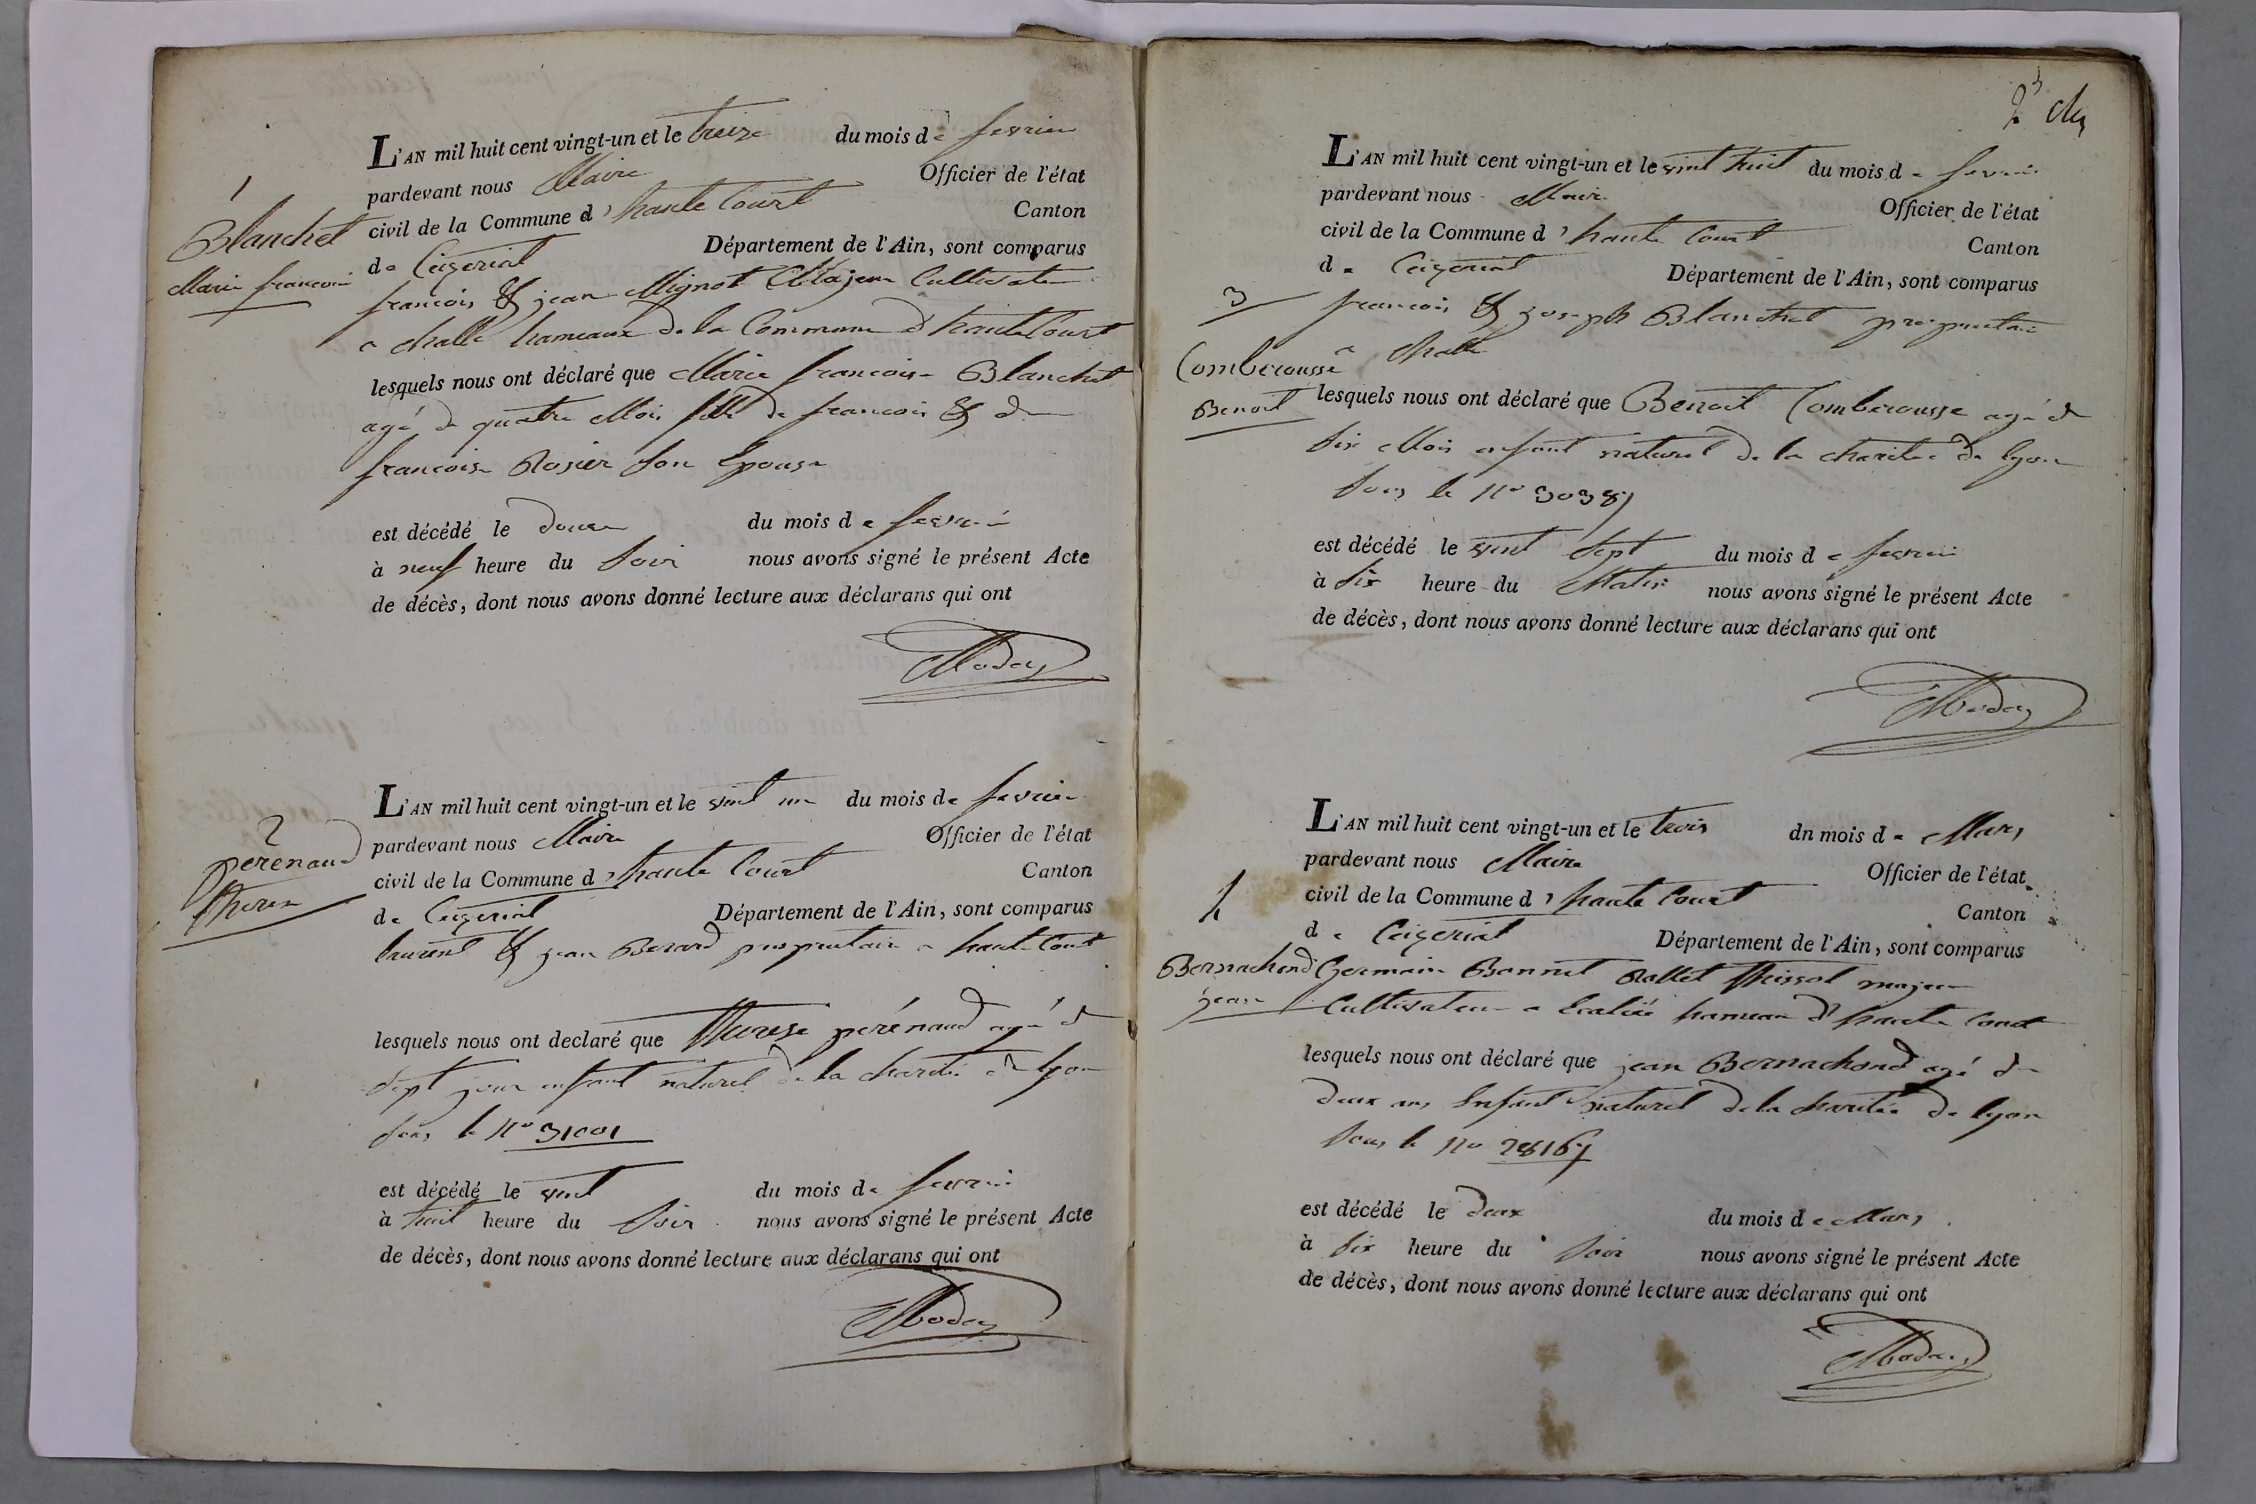 1
Blanchet
Marie francoise
L'AN mil huit cent vingt-un et le treize du mois de fevrier
pardevant nous Maire Officier de l'état
civil de la Commune d'haute Court Canton
de Ceyzeriat Département de l'Ain, sont comparus
francois & jean Mignot Majeur Cultivateur
a challe hameaux de la Commune d'haute Court
lesquels nous ont déclaré que Marie francoise Blanchet
agé de quatre Mois fille de francois & de
francoise Rosier son Epouse
est décédé le douze du mois de fevrié
à neuf heure du soir nous avons signé le présent Acte
de décès, dont nous avons donné lecture aux déclarans qui ont
2
perénaud
therese
L'AN mil huit cent vingt-un et le vint un du mois de fevrier
pardevant nous Maire Officier de l'état
civil de la Commune d'haute Court Canton
de Ceyzeriat Département de l'Ain, sont comparus
laurent & jean Berard propriétaire a haute Court
lesquels nous ont declaré que Therese perénaud agé de
sept jour enfant naturel de la charité de lyon
sous le No 31001
est décédé le vint du mois de fevrier
à huit heure du soir nous avons signé le présent Acte
de décès, dont nous avons donné lecture aux déclarans qui ont
3
Comberousse
Benoit
L'AN mil huit cent vingt-un et le vint huit du mois de fevrier
pardevant nous Maire Officier de l'état
civil de la Commune d'haute Court Canton
de Ceyzeriat Département de l'Ain, sont comparus
francois & joseph Blanchet propriétaire
a challe
lesquels nous ont déclaré que Benoit Comberousse agé de
six Mois enfant naturel de la charitée de lyon
sous le No 30389
est décédé le vint sept du mois de fevrier
à six heure du Matin nous avons signé le présent Acte
de décès, dont nous avons donné lecture aux déclarans qui ont
4
Bernachond
jean
L'AN mil huit cent vingt-un et le trois dn mois de Mars
pardevant nous Maire Officier de l'état
civil de la Commune d'haute Court Canton
de Ceyzeriat Département de l'Ain, sont comparus
Germain Bonnet majeur
Cultivateur a hameau d'haute Court
lesquels nous ont déclaré que jean Bernachond agé de
deux ans Enfant naturel de la charitée de lyon
sous le No 28167
est décédé le deux du mois de Mars
à six heure du soir nous avons signé le présent Acte
de décès, dont nous avons donné lecture aux déclarans qui ont